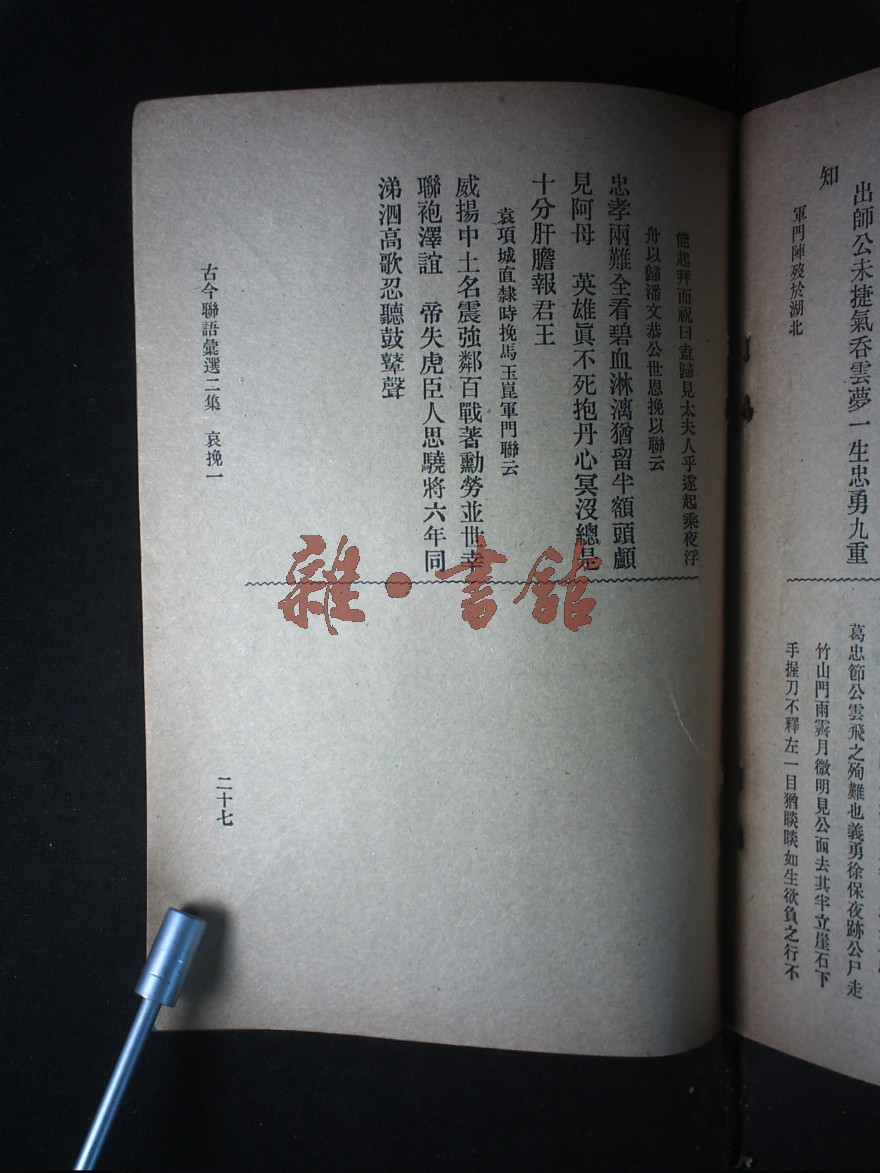 出師公未捷氣呑雲夢一生忠勇九重
知
軍門陣殁於湖北
葛忠節公雲飛之殉難也義勇徐保夜跡公尸走
竹山門雨霽月微明見公面去其半立崖石下
手握刀不釋左一目猶睒睒如生欲負之行不
能起拜而祝曰盍歸見太夫人乎遂起乘夜浮
舟以歸潘文恭公世恩挽以聯云
忠孝兩難全看碧血淋漓猶留半額頭顱
見阿母　英雄眞不死抱丹心冥沒總是
十分肝膽報君王
袁項城直隸時挽馬玉崑軍門聯云
威揚中土名震強鄰百戰著勳勞並世幸
聯袍澤誼　帝失虎臣人思驍將六年同
涕泗高歌忍聽鼓鼙聲
古今聯語彙選二集　哀挽一
二十七
雜·書館